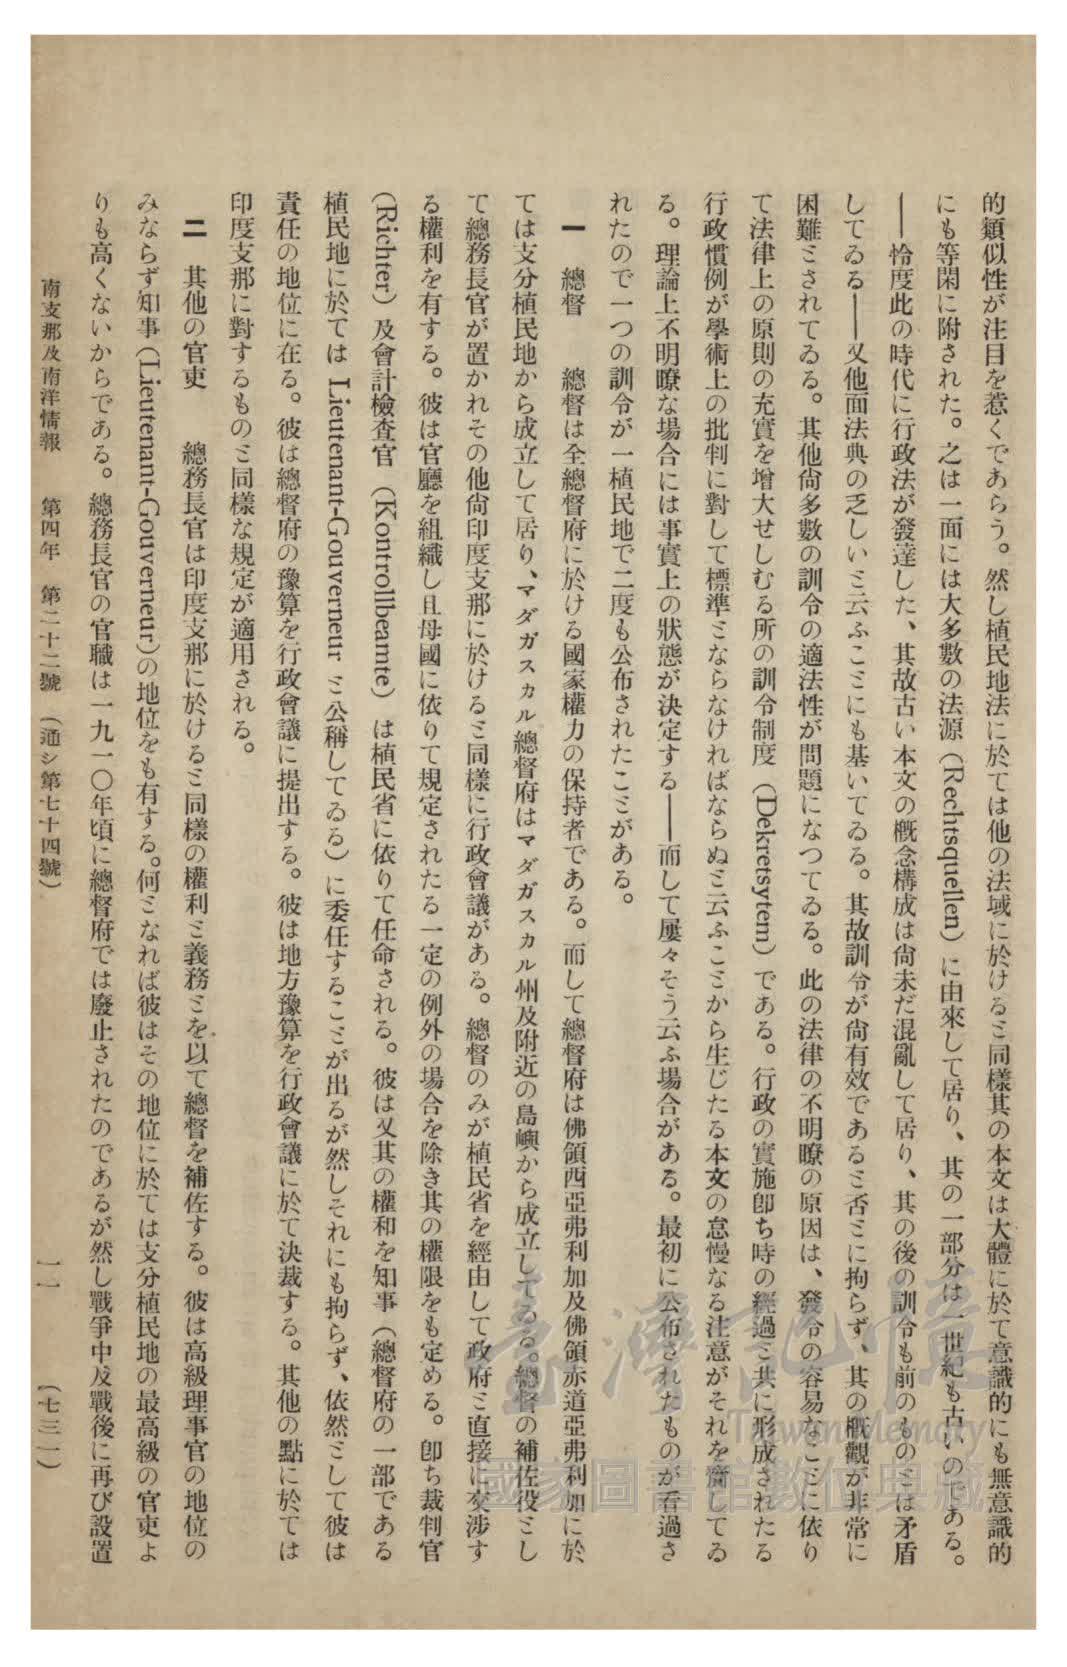 的類似性が注目を惹くであらう。然し植民地法に於ては他の法域に於けるミ同樣其の本文は大體に於て意識的にも無意識的
にも等閑に附された。之は一面には大多數の法源(Rechtsquellen)に由來して居り、其の一部分は一世紀も古いのである。
――恰度此の時代に行政法が發達した、其故古い本文の槪念構成は尙未だ混亂して居り、其の後の訓令も前のものミは矛盾
してゐる――又他面法典の乏しいミ云ふこミにも基いてゐる。其故訓令が尙有效であるミ否ミに拘らず、其の槪觀が非常に
困難ミされてゐる。其他尙多數の訓令の適法性が問題になつてゐる。此の法律の不明瞭の原因は、發令の容易なこミに依り
て法律上の原則の充實を增大せしむる所の訓令制度(Dekretsytem)である。行政の實施卽ち時の經過ミ共に形成されたる
行政慣例が學術上の批判に對して標準ミならなければならぬミ云ふこミから生じたる本文の怠慢なる注意がそれを齎してゐ
る。理論上不明瞭な場合には事實上の狀態が決定する――而して屢々そう云ふ場合がある。最初に公布されたものが看過さ
れたので一つの訓令が一植民地で二度も公布されたこミがある。
一 總督 總督は全總督府に於ける國家權力の保持者である。而して總督府は佛領西亞弗利加及佛領赤道亞弗利加に於
ては支分植民地から成立して居り、マダガスカル總督府はマダガスカル州及附近の島嶼から成立してゐる。總督の補佐役ミし
て總務長官が置かれその他尙印度支那に於けるミ同樣に行政會議がある。總督のみが植民省を經由して政府ミ直接に交涉す
る權利を有する。彼は官廳を組織し且母國に依りて規定されたる一定の例外の場合を除き其の權限をも定める。卽ち裁判官
(Richter)及會計檢査官(Kontrollbeamte)は植民省に依りて任命される。彼は又其の權和を知事(總督府の一部である
植民地に於ては Lieutenant-Gouverneur ミ公稱してゐる)に委任するこミが出るが然しそれにも拘らず、依然ミして彼は
責任の地位に在る。彼は總督府の豫算を行政會議に提出する。彼は地方豫算を行政會議に於て決裁する。其他の點に於ては
印度支那に對するものミ同樣な規定が適用される。
二 其他の官吏 總務長官は印度支那に於けるミ同樣の權利ミ義務ミを以て總督を補佐する。彼は高級理事官の地位の
みならず知事(Lieutenant-Gouverneur)の地位をも有する。何ミなれば彼はその地位に於ては支分植民地の最高級の官吏よ
りも高くないからである。總務長官の官職は一九一〇年頃に總督府では廢止されたのであるが然し戰爭中及戰後に再び設置
南支那及南洋情報 第四年 第二十二號 (通シ第七十四號) 一一 (七三一)
臺灣記憶
Taiwan Memory
國家圖書館數位典藏